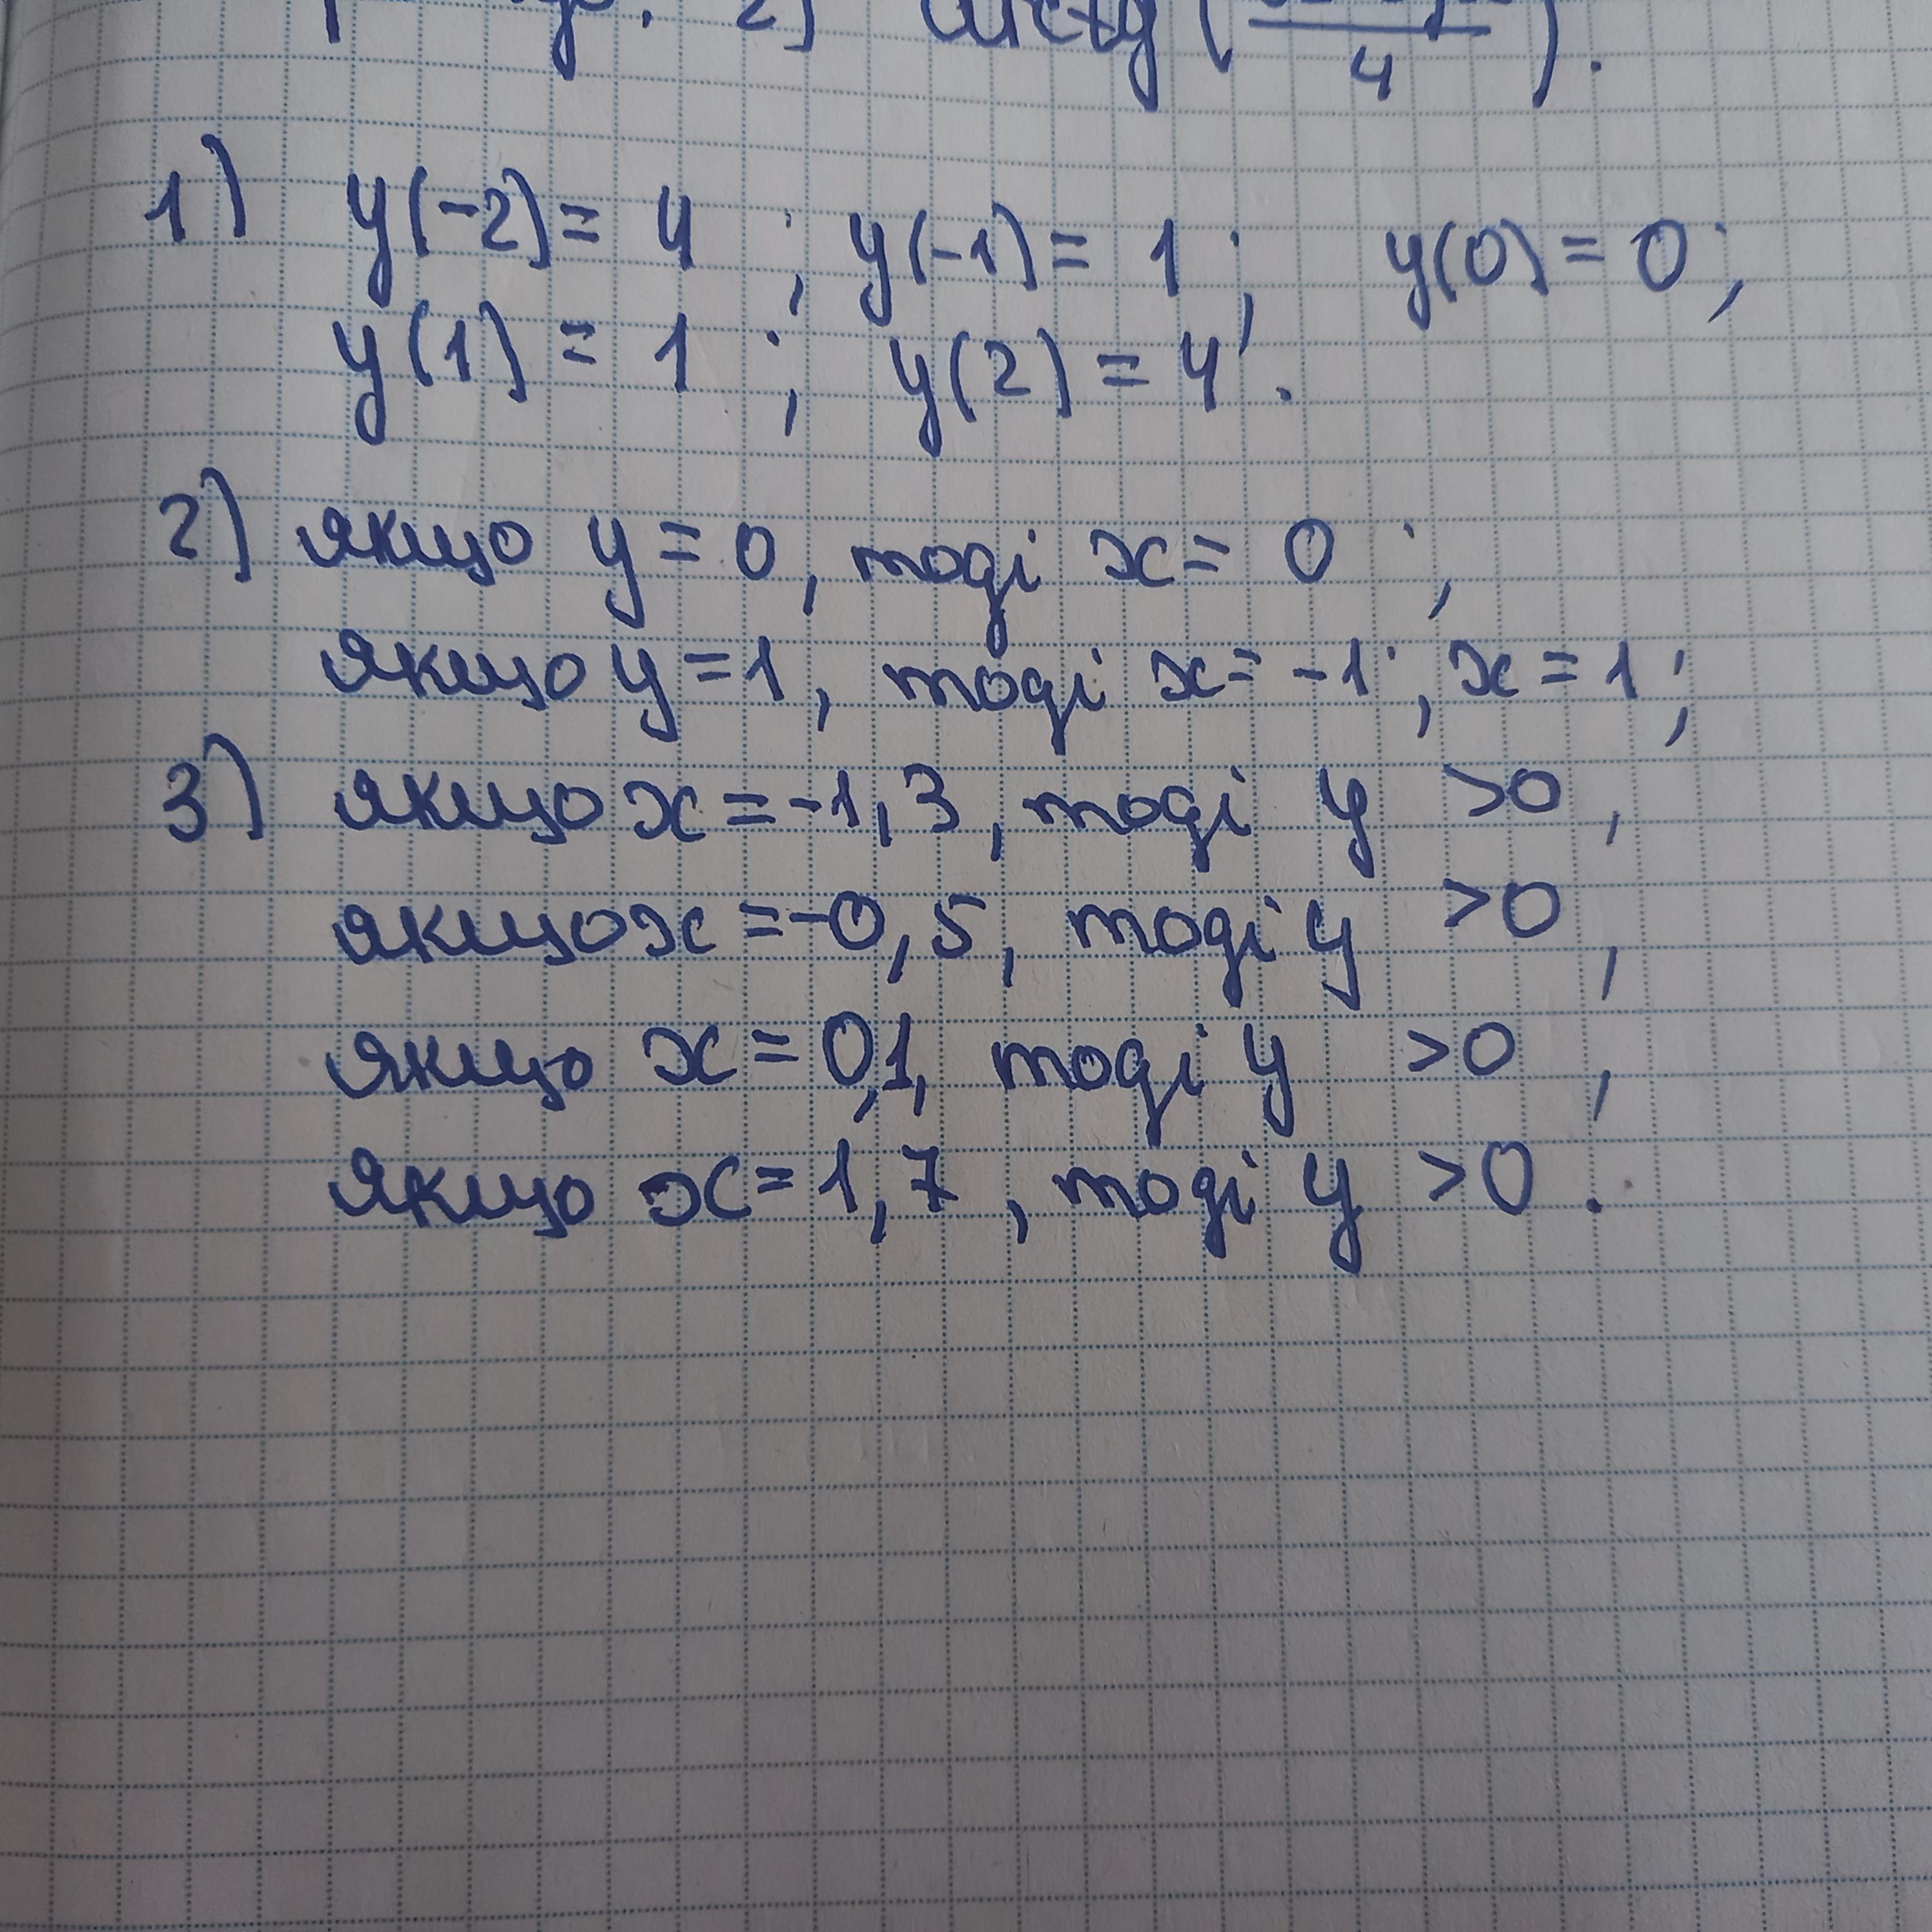 2) arctg( 4 ).
1) y(-2) = 4 ; y(-1) = 1 ; y(0) = 0 ;
y(1) = 1 ; y(2) = 4 .
2) якщо y = 0, тоді x = 0 ;
якщо y = 1, тоді x = -1 ; x = 1 ;
3) якщо x = -1,3, тоді y > 0 ,
якщо x = -0,5, тоді y > 0 ,
якщо x = 0,1, тоді y > 0 ,
якщо x = 1,7 , тоді y > 0 .